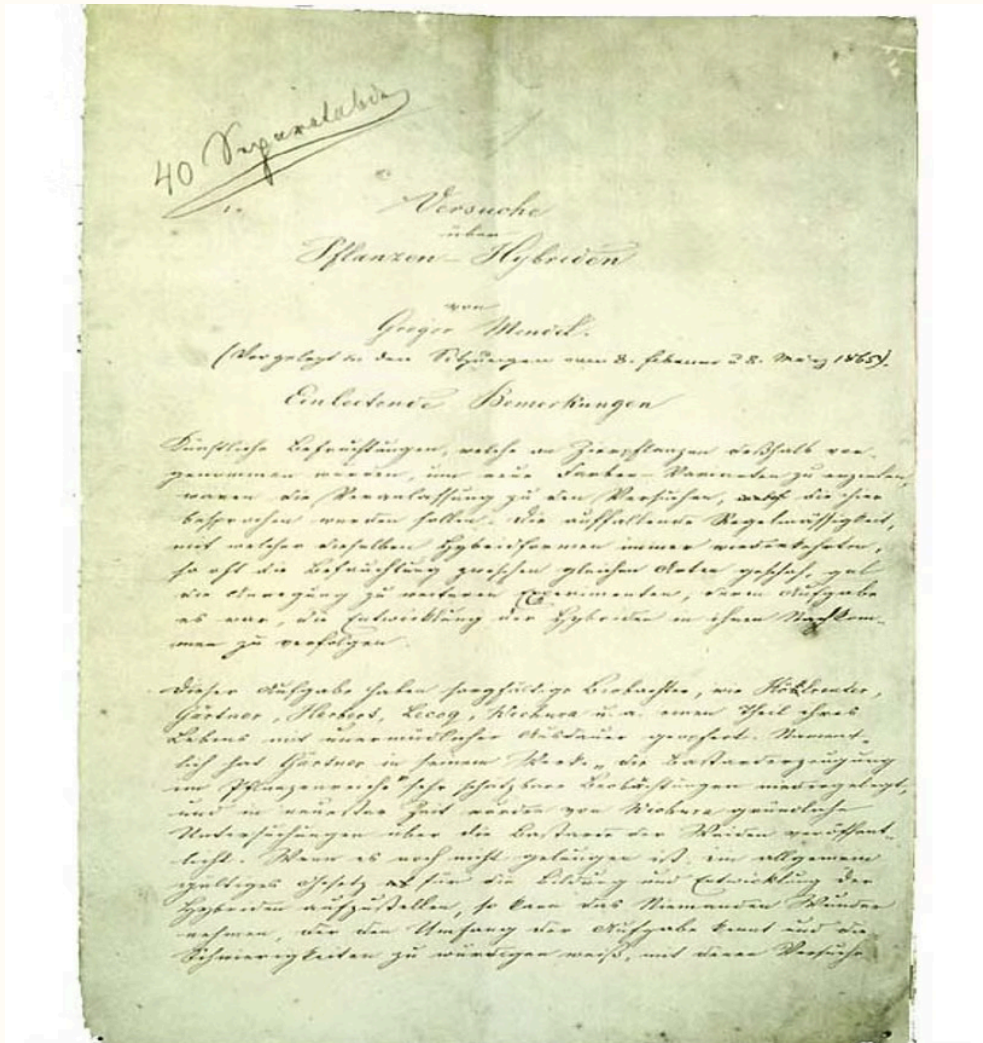 40 Separatabdr.
Versuche
über
Pflanzen-Hybriden
von
Gregor Mendel.
(Vorgelegt in den Sitzungen vom 8. Februar u 8. März 1865).
Einleitende Bemerkungen
Künstliche Befruchtungen, welche an Zierpflanzen deßhalb vor-
genommen wurden, um neue Farben-Varianten zu erzielen,
waren die Veranlassung zu den Versuchen, die hier
besprochen werden sollen. Die auffallende Regelmässigkeit,
mit welcher dieselben Hybridformen immer wiederkehrten,
so oft die Befruchtung zwischen gleichen Arten geschah, gab
die Anregung zu weiteren Experimenten, deren Aufgabe
es war, die Entwicklung der Hybriden in ihren Nachkom-
men zu verfolgen.
Dieser Aufgabe haben sorgfältige Beobachter, wie Kölreuter,
Gärtner, Herbert, Lecoq, Wichura u. a. einen Theil ihres
Lebens mit unermüdlicher Ausdauer geopfert. Nament-
lich hat Gärtner in seinem Werke „die Bastarderzeugung
im Pflanzenreiche" sehr schätzbare Beobachtungen niedergelegt,
und in neuester Zeit wurden von Wichura gründliche
Untersuchungen über die Bastarde der Weiden veröffent-
licht. Wenn es noch nicht gelungen ist, ein allgemein
gültiges Gesetz für die Bildung und Entwicklung der
Hybriden aufzustellen, so kann das Niemanden Wunder
nehmen, der den Umfang der Aufgabe kennt und die
Schwierigkeiten zu würdigen weiß, mit denen Versuche